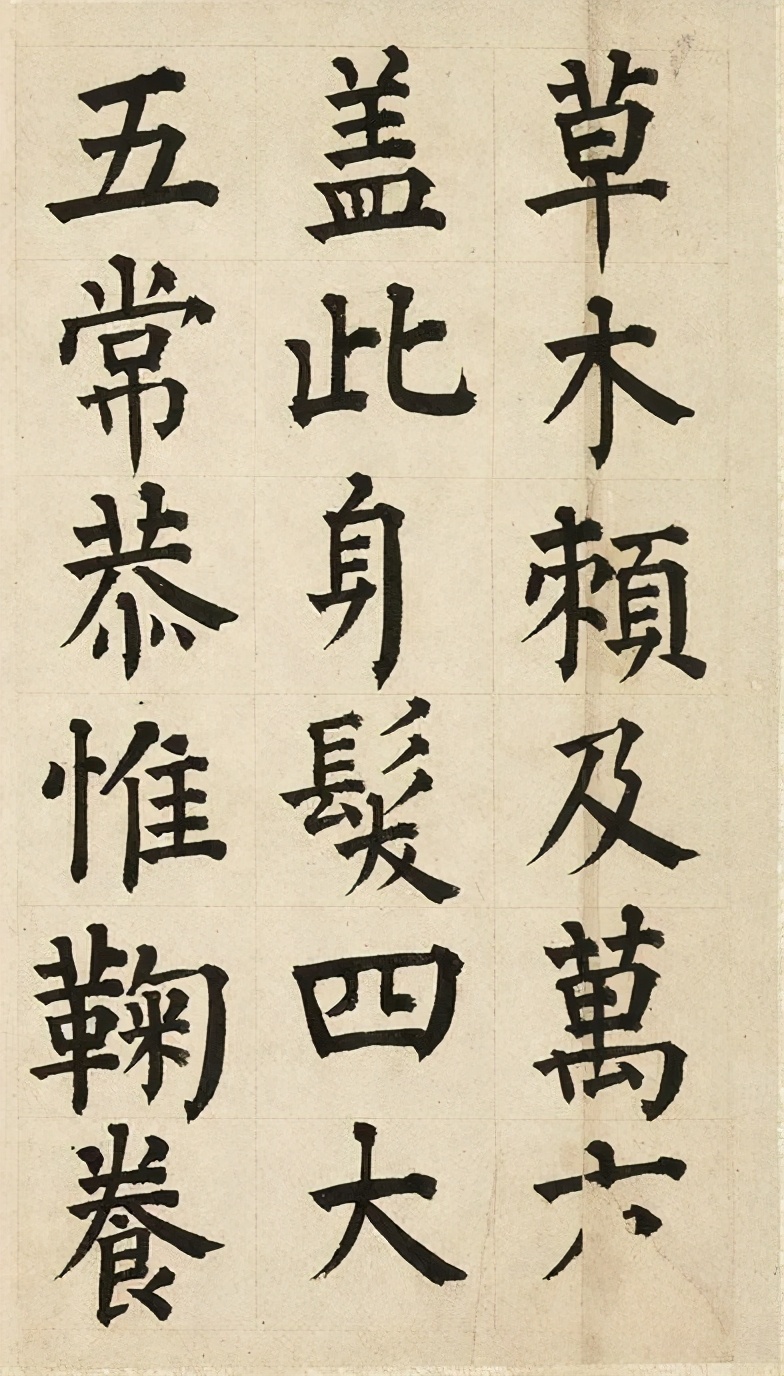 草木賴及萬六
盖此身髮四大
五常恭惟鞠養